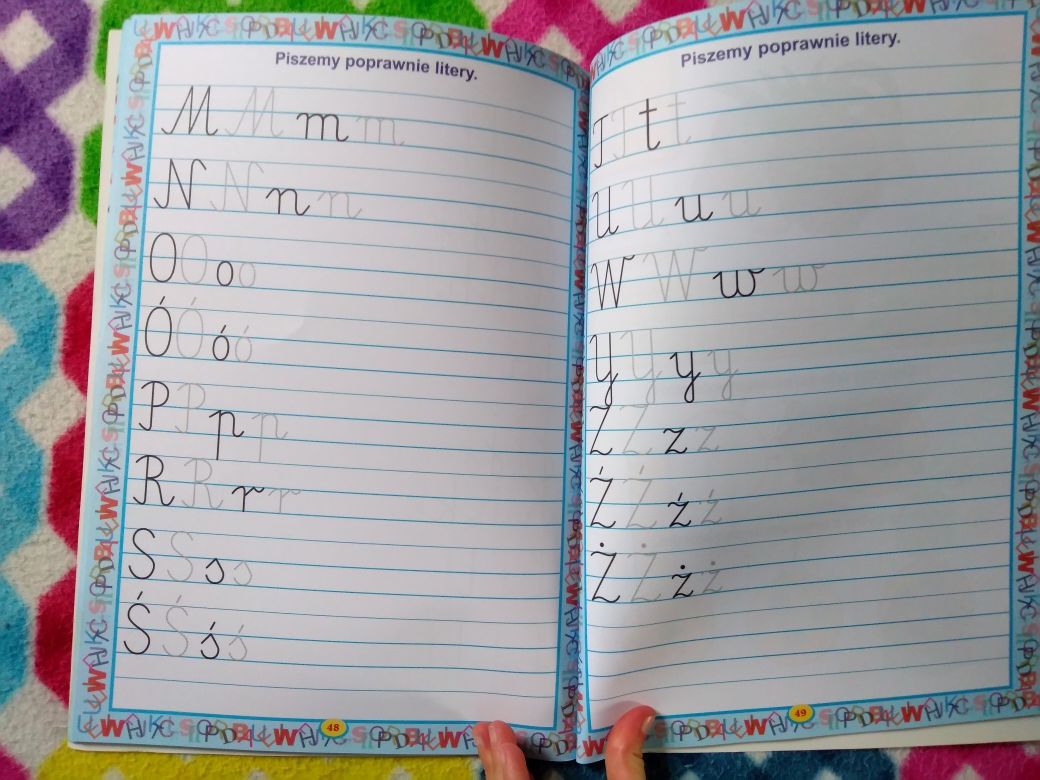 Piszemy poprawnie litery.
M M m m
N N n n
O O o o
Ó Ó ó ó
P P p p
R R r r
S S s s
Ś Ś ś ś
48
Piszemy poprawnie litery.
T T t t
U U u u
W W w w
Y Y y y
Z Z z z
Ź Ź ź ź
Ż Ż ż ż
49